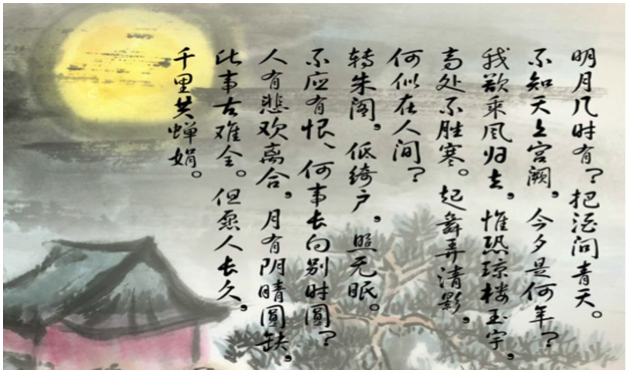 明月几时有?把酒问青天。
不知天上宫阙,今夕是何年?
我欲乘风归去,惟恐琼楼玉宇,
高处不胜寒。起舞弄清影,
何似在人间?
转朱阁,低绮户,照无眠。
不应有恨、何事长向别时圆?
人有悲欢离合,月有阴晴圆缺,
此事古难全。但愿人长久,
千里共婵娟。